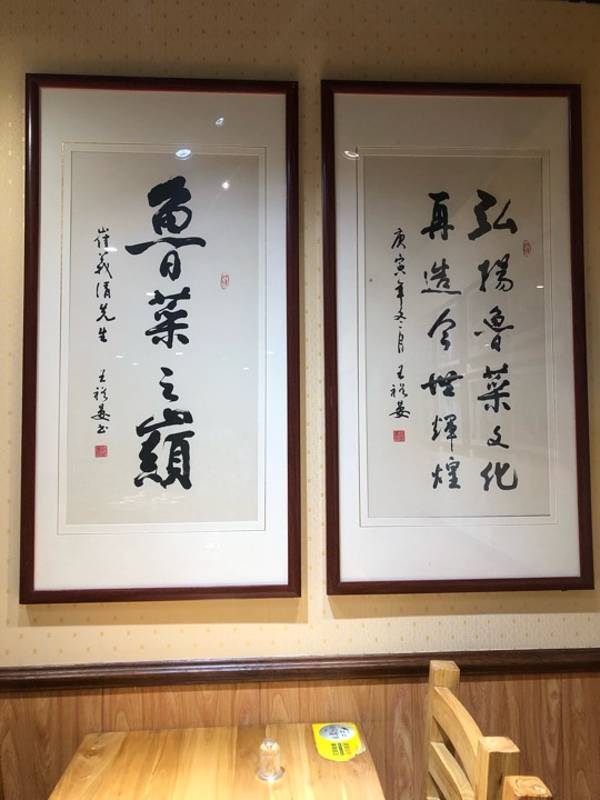 魯菜之巔
崔義清先生 王裕晏书
弘揚魯菜文化
再造今世輝煌
庚寅年冬月 王裕晏